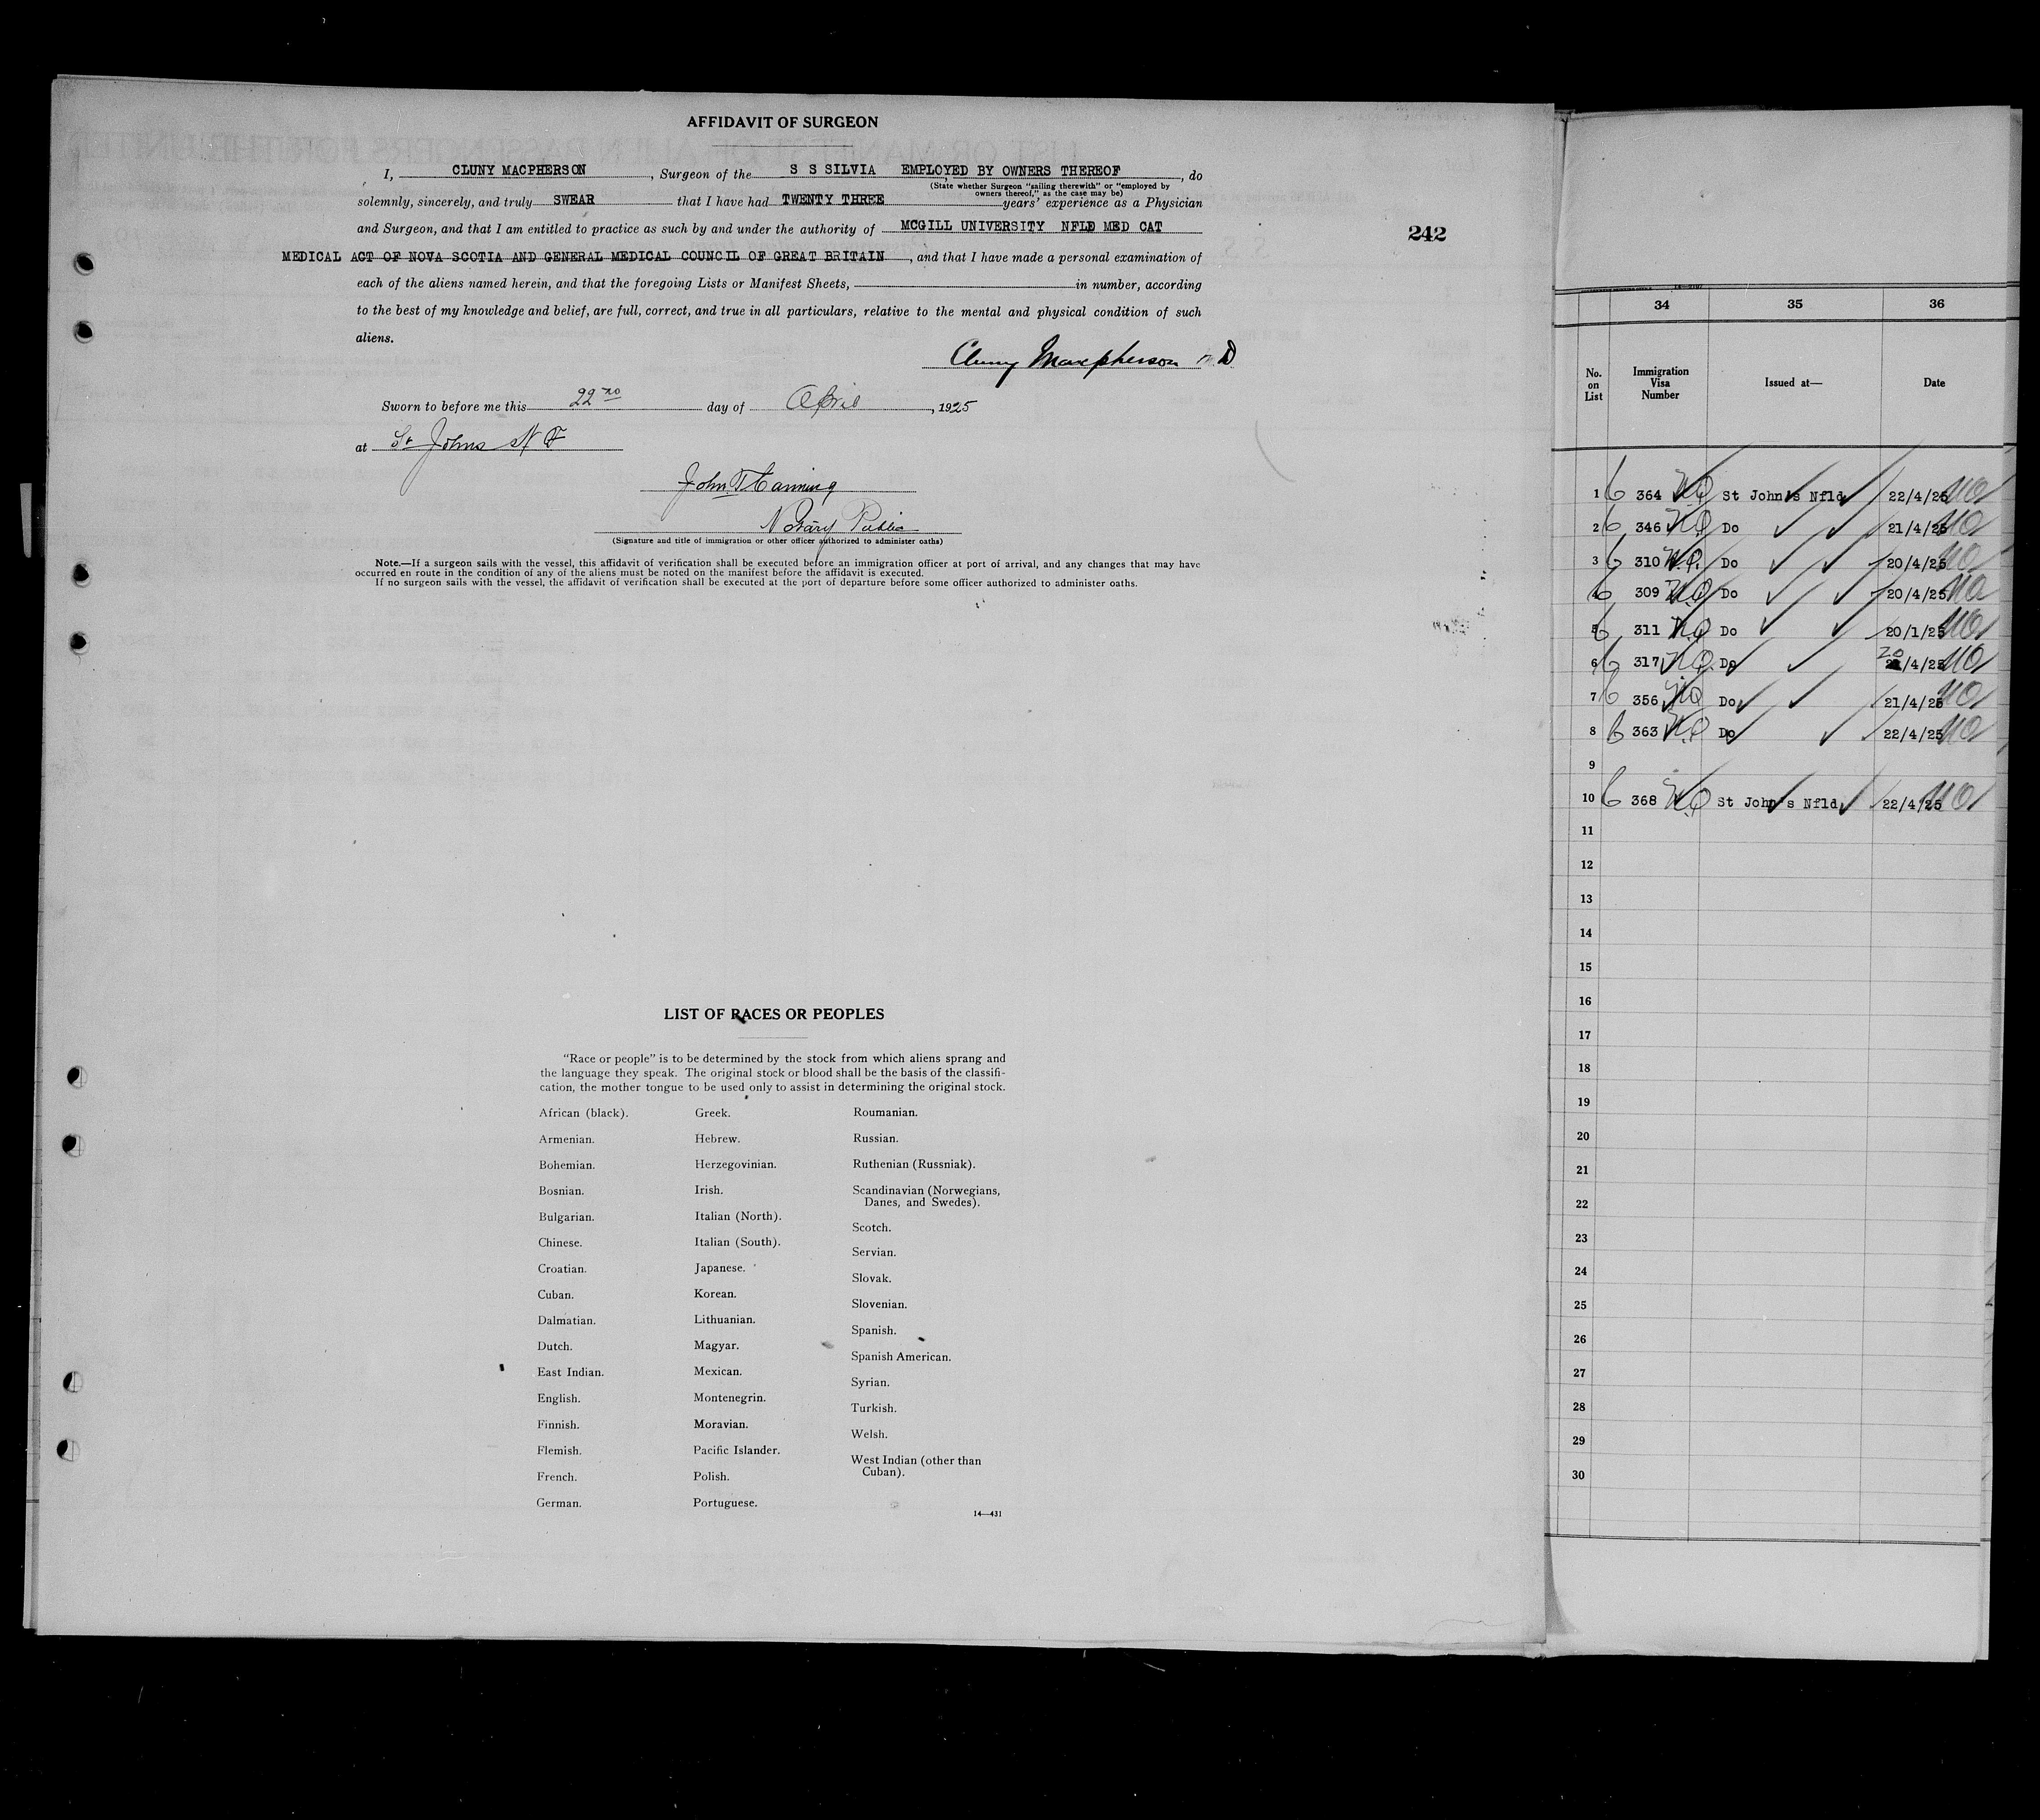 AFFIDAVIT OF SURGEON
I, CLUNY MACPHERSON, Surgeon of the S S SILVIA EMPLOYED BY OWNERS THEREOF, do
(State whether Surgeon "sailing therewith" or "employed by
owners thereof," as the case may be)
solemnly, sincerely, and truly SWEAR that I have had TWENTY THREE years' experience as a Physician
and Surgeon, and that I am entitled to practice as such by and under the authority of MCGILL UNIVERSITY NFLD MED CAT
MEDICAL ACT OF NOVA SCOTIA AND GENERAL MEDICAL COUNCIL OF GREAT BRITAIN, and that I have made a personal examination of
each of the aliens named herein, and that the foregoing Lists or Manifest Sheets, in number, according
to the best of my knowledge and belief, are full, correct, and true in all particulars, relative to the mental and physical condition of such
aliens.
Cluny Macpherson M.D
Sworn to before me this 22nd day of April, 1925
at St Johns N F
John T Canning
Notary Public
(Signature and title of immigration or other officer authorized to administer oaths)
Note.—If a surgeon sails with the vessel, this affidavit of verification shall be executed before an immigration officer at port of arrival, and any changes that may have
occurred en route in the condition of any of the aliens must be noted on the manifest before the affidavit is executed.
If no surgeon sails with the vessel, the affidavit of verification shall be executed at the port of departure before some officer authorized to administer oaths.
242
LIST OF RACES OR PEOPLES
"Race or people" is to be determined by the stock from which aliens sprang and
the language they speak. The original stock or blood shall be the basis of the classifi-
cation, the mother tongue to be used only to assist in determining the original stock.
African (black).
Armenian.
Bohemian.
Bosnian.
Bulgarian.
Chinese.
Croatian.
Cuban.
Dalmatian.
Dutch.
East Indian.
English.
Finnish.
Flemish.
French.
German.
Greek.
Hebrew.
Herzegovinian.
Irish.
Italian (North).
Italian (South).
Japanese.
Korean.
Lithuanian.
Magyar.
Mexican.
Montenegrin.
Moravian.
Pacific Islander.
Polish.
Portuguese.
Roumanian.
Russian.
Ruthenian (Russniak).
Scandinavian (Norwegians,
Danes, and Swedes).
Scotch.
Servian.
Slovak.
Slovenian.
Spanish.
Spanish American.
Syrian.
Turkish.
Welsh.
West Indian (other than
Cuban).
14—431
34 35 36
No. on List Immigration Visa Number Issued at— Date
1 6 364 St John's Nfld 22/4/25
2 6 346 Do 21/4/25
3 6 310 Do 20/4/25
4 6 309 Do 20/4/25
5 6 311 Do 20/1/25
6 6 317 Do 20/4/25
7 6 356 Do 21/4/25
8 6 363 Do 22/4/25
9
10 6 368 St John's Nfld 22/4/25
11
12
13
14
15
16
17
18
19
20
21
22
23
24
25
26
27
28
29
30